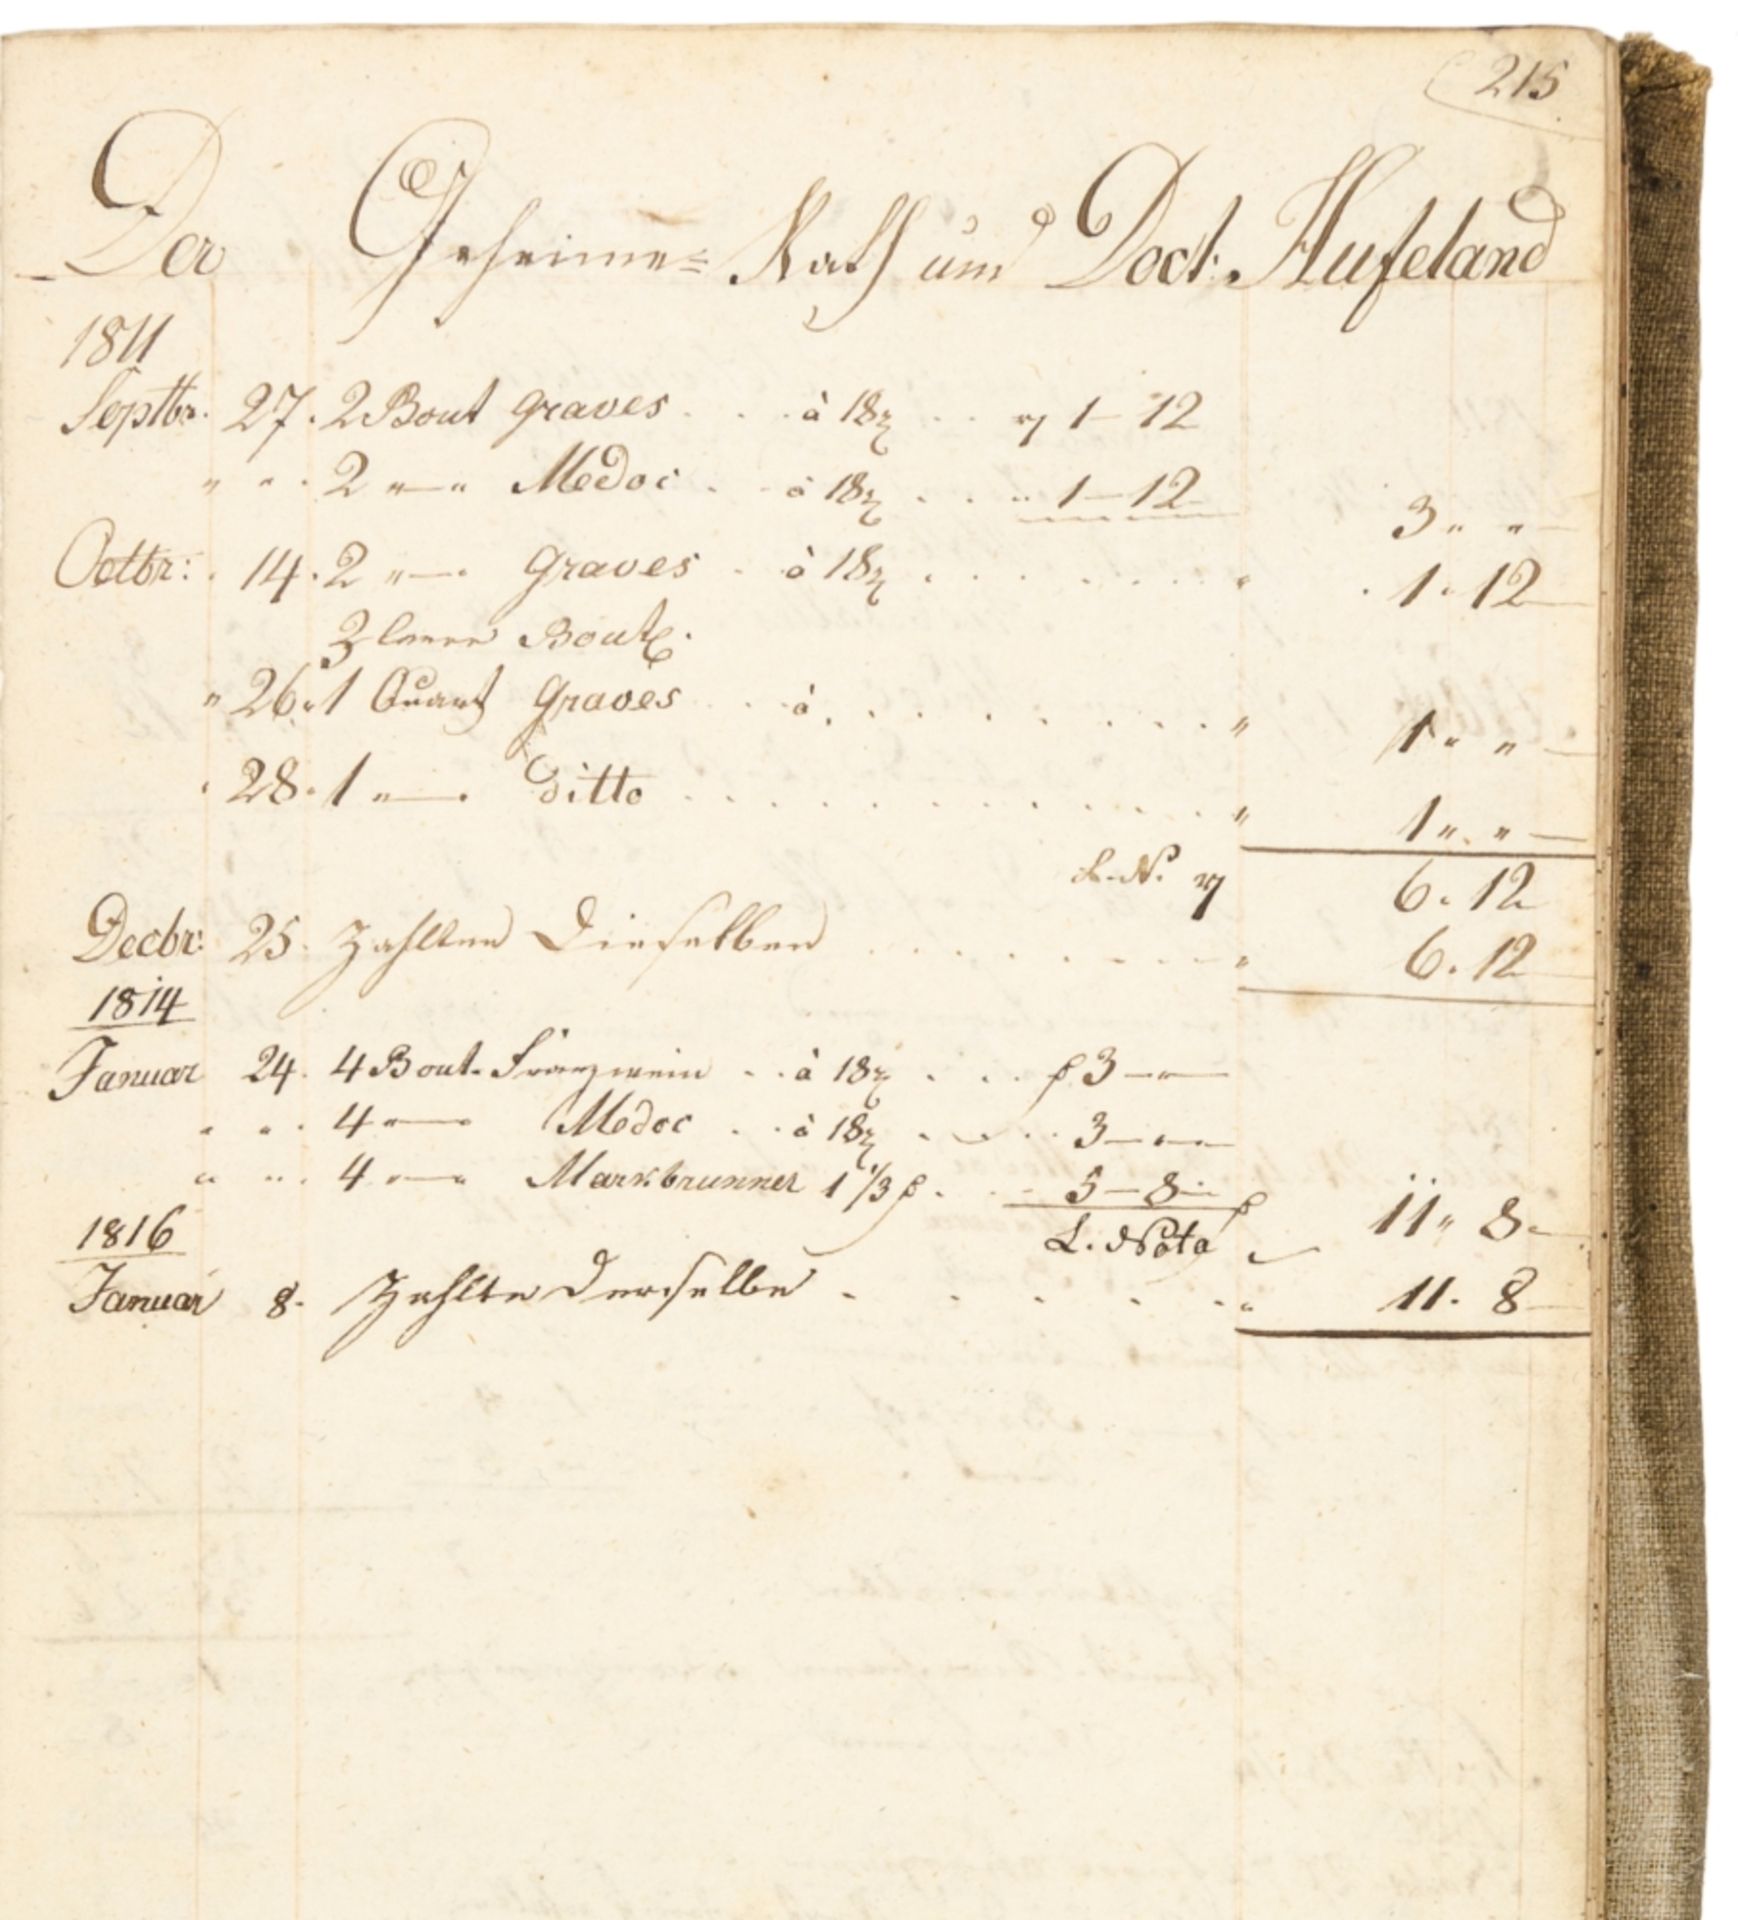 215
Der Geheime= Rath und Doct: Hufeland
1811
Septbr. 27. 2 Bout Graves . . . à 18 . . 1 — 12
" " . 2 "—" Medoc . . à 18 . . . " 1 — 12 3 " " —
Octbr: . 14. 2 "—. Graves . à 18 . . . . . . . . " . 1 . 12 —
3 leere Bout.
" 26. 1 Quart Graves . . à . . . . . . . . . " 1 " " —
. 28. 1 "—. Ditto . . . . . . . . . . . . " 1 " " —
L. N. 6 . 12
Decbr: 25. Zahlten Dieselben . . . . . . . . . " 6 . 12 —
1814
Januar 24. 4 Bout. Franzwein . . à 18 . . . 3 —"—
" " . 4 "— Medoc . . à 18 . . . 3 —"—
" " . 4 "—" Markbrunner 1 1/3 . . . 5 — 8 — 11 " 8 —
L. Nota
1816
Januar 8. Zahlte Derselbe . . . . . . " 11 . 8 —